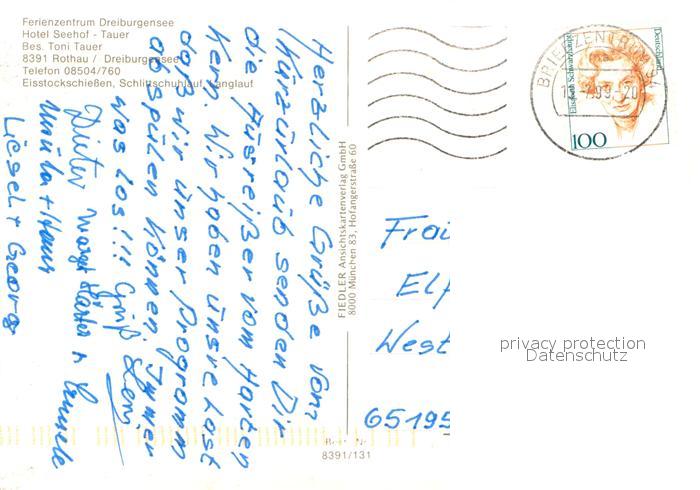 Ferienzentrum Dreiburgensee
Hotel Seehof - Tauer
Bes. Toni Tauer
8391 Rothau / Dreiburgensee
Telefon 08504/760
Eisstockschießen, Schlittschuhlauf, Langlauf
Herzliche Grüße vom
Kurzurlaub senden Dir
die Ausreißer vom Harten
Kern. Wir haben unsre Last
daß wir unser Programm
abspülen können. Immer
was los!!! Gruß Leni
Dieter Margit
Ursula + Hans
Liesel + Georg
FIEDLER Ansichtskartenverlag GmbH
8000 München 83, Hofangerstraße 60
Best. Nr.
8391/131
BRIEFZENTRUM
-7.99-20
Elisabeth Schwarzhaupt
Deutschland
100
Frau
Elf
West
65195
privacy protection
Datenschutz